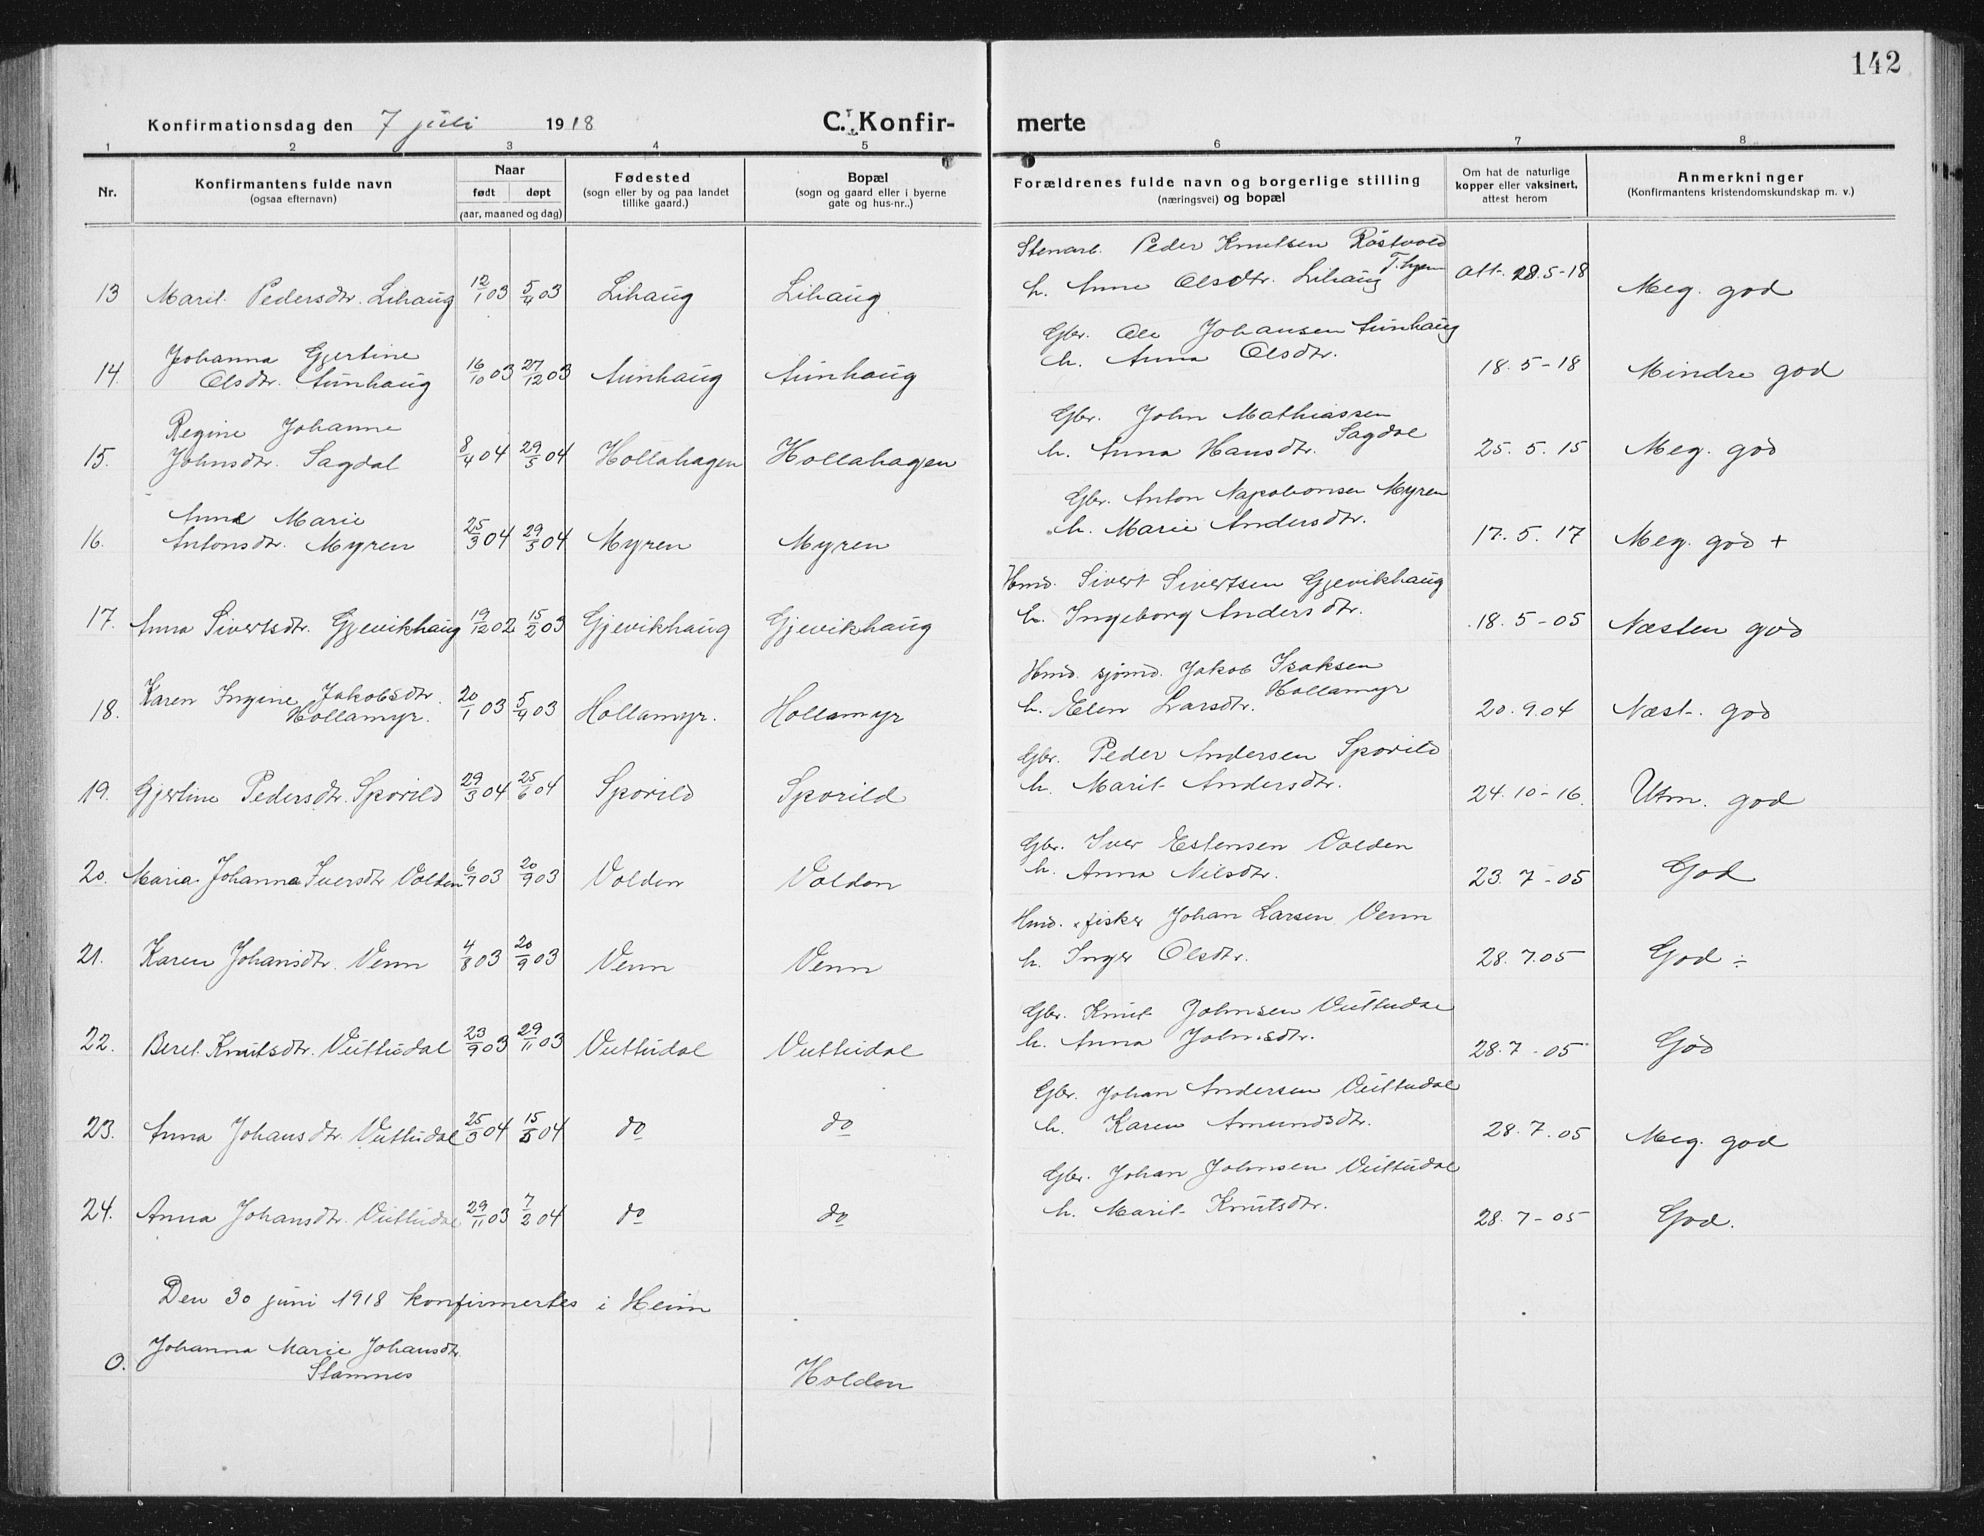 142
Konfirmationsdag den 7 juli 1918 C. Konfir- merte
1 2 3 4 5 6 7 8
Nr.
Konfirmantens fulde navn
(ogsaa efternavn)
Naar
født døpt
(aar, maaned og dag)
Fødested
(sogn eller by og paa landet
tillike gaard.)
Bopæl
(sogn og gaard eller i byerne
gate og hus-nr..)
Forældrenes fulde navn og borgerlige stilling
(næringsvei) og bopæl
Om hat de naturlige
kopper eller vaksinert,
attest herom
Anmerkninger
(Konfirmantens kristendomskundskap m. v.)
Stenarb. Peder Knutsen Röstvold
13 Marit Pedersdtr. Lihaug 12/1 03 5/4 03 Lihaug Lihaug h. Anne Olsdtr. Lihaug att. 28.5-18 Meg. god
Johanna Gjertine Gbr. Ole Johansen Aunhaug
14. Olsdtr. Aunhaug 16/10 03 27/12 03 Aunhaug Aunhaug h. Anna Olsdtr. 18.5-18 Mindre god
Regine Johanne Gbr. John Mathiassen
15. Johnsdtr. Sagdal 8/4 04 29/5 04 Hollahagen Hollahagen h. Anna Hansdtr. Sagdal 25.5.15 Meg. god
Anne Marie Gbr. Anton Napoleonsen Myren
16. Antonsdtr. Myren 25/3 04 29/5 04 Myren Myren h. Marie Andersdtr. 17.5.17 Meg. god +
Hmd. Sivert Sivertsen Gjevikhaug
17. Anna Sivertsdtr. Gjevikhaug 19/12 02 15/2 03 Gjevikhaug Gjevikhaug h. Ingeborg Andersdtr. 18.5-05 Næsten god
Karen Ingine Jakobsdtr. Hmd. sjömd. Jakob Isaksen
18. Hollamyr. 20/1 03 5/4 03 Hollamyr. Hollamyr h. Elen Larsdtr. Hollamyr 20.9.04 Næst. god
Gbr. Peder Andersen Sporild
19. Gjertine Pedersdtr. Sporild 29/3 04 25/6 04 Sporild Sporild h. Marit Andersdtr. 24.10-16. Utm. god
Gbr. Iver Estensen Volden
20. Maria Johanna Iversdtr Volden 6/7 03 20/9 03 Volden Volden h. Anna Nilsdtr. 23.7-05 God
Hmd. fisker Johan Larsen Venn
21. Karen Johansdtr. Venn 4/8 03 20/9 03 Venn Venn h. Inger Olsdtr. 28.7.05 God ÷
Gbr. Knut Johnsen Vuttudal
22. Beret Knutsdtr. Vuttudal 23/9 03 29/11 03 Vuttudal Vuttudal h. Anna Johnsdtr. 28.7-05 God
Gbr. Johan Andersen Vuttudal
23. Anna Johansdtr. Vuttudal 25/3 04 15/5 04 do do h. Karen Amundsdtr. 28.7.05 Meg. god
Gbr. Johan Johnsen Vuttudal
24. Anna Johansdtr. Vuttudal 29/11 03 7/2 04 do do h. Marit Knutsdtr. 28.7-05 God.
Den 30 juni 1918 konfirmertes i Heim
Johanna Marie Johansdtr.
0. Stamnes Holden